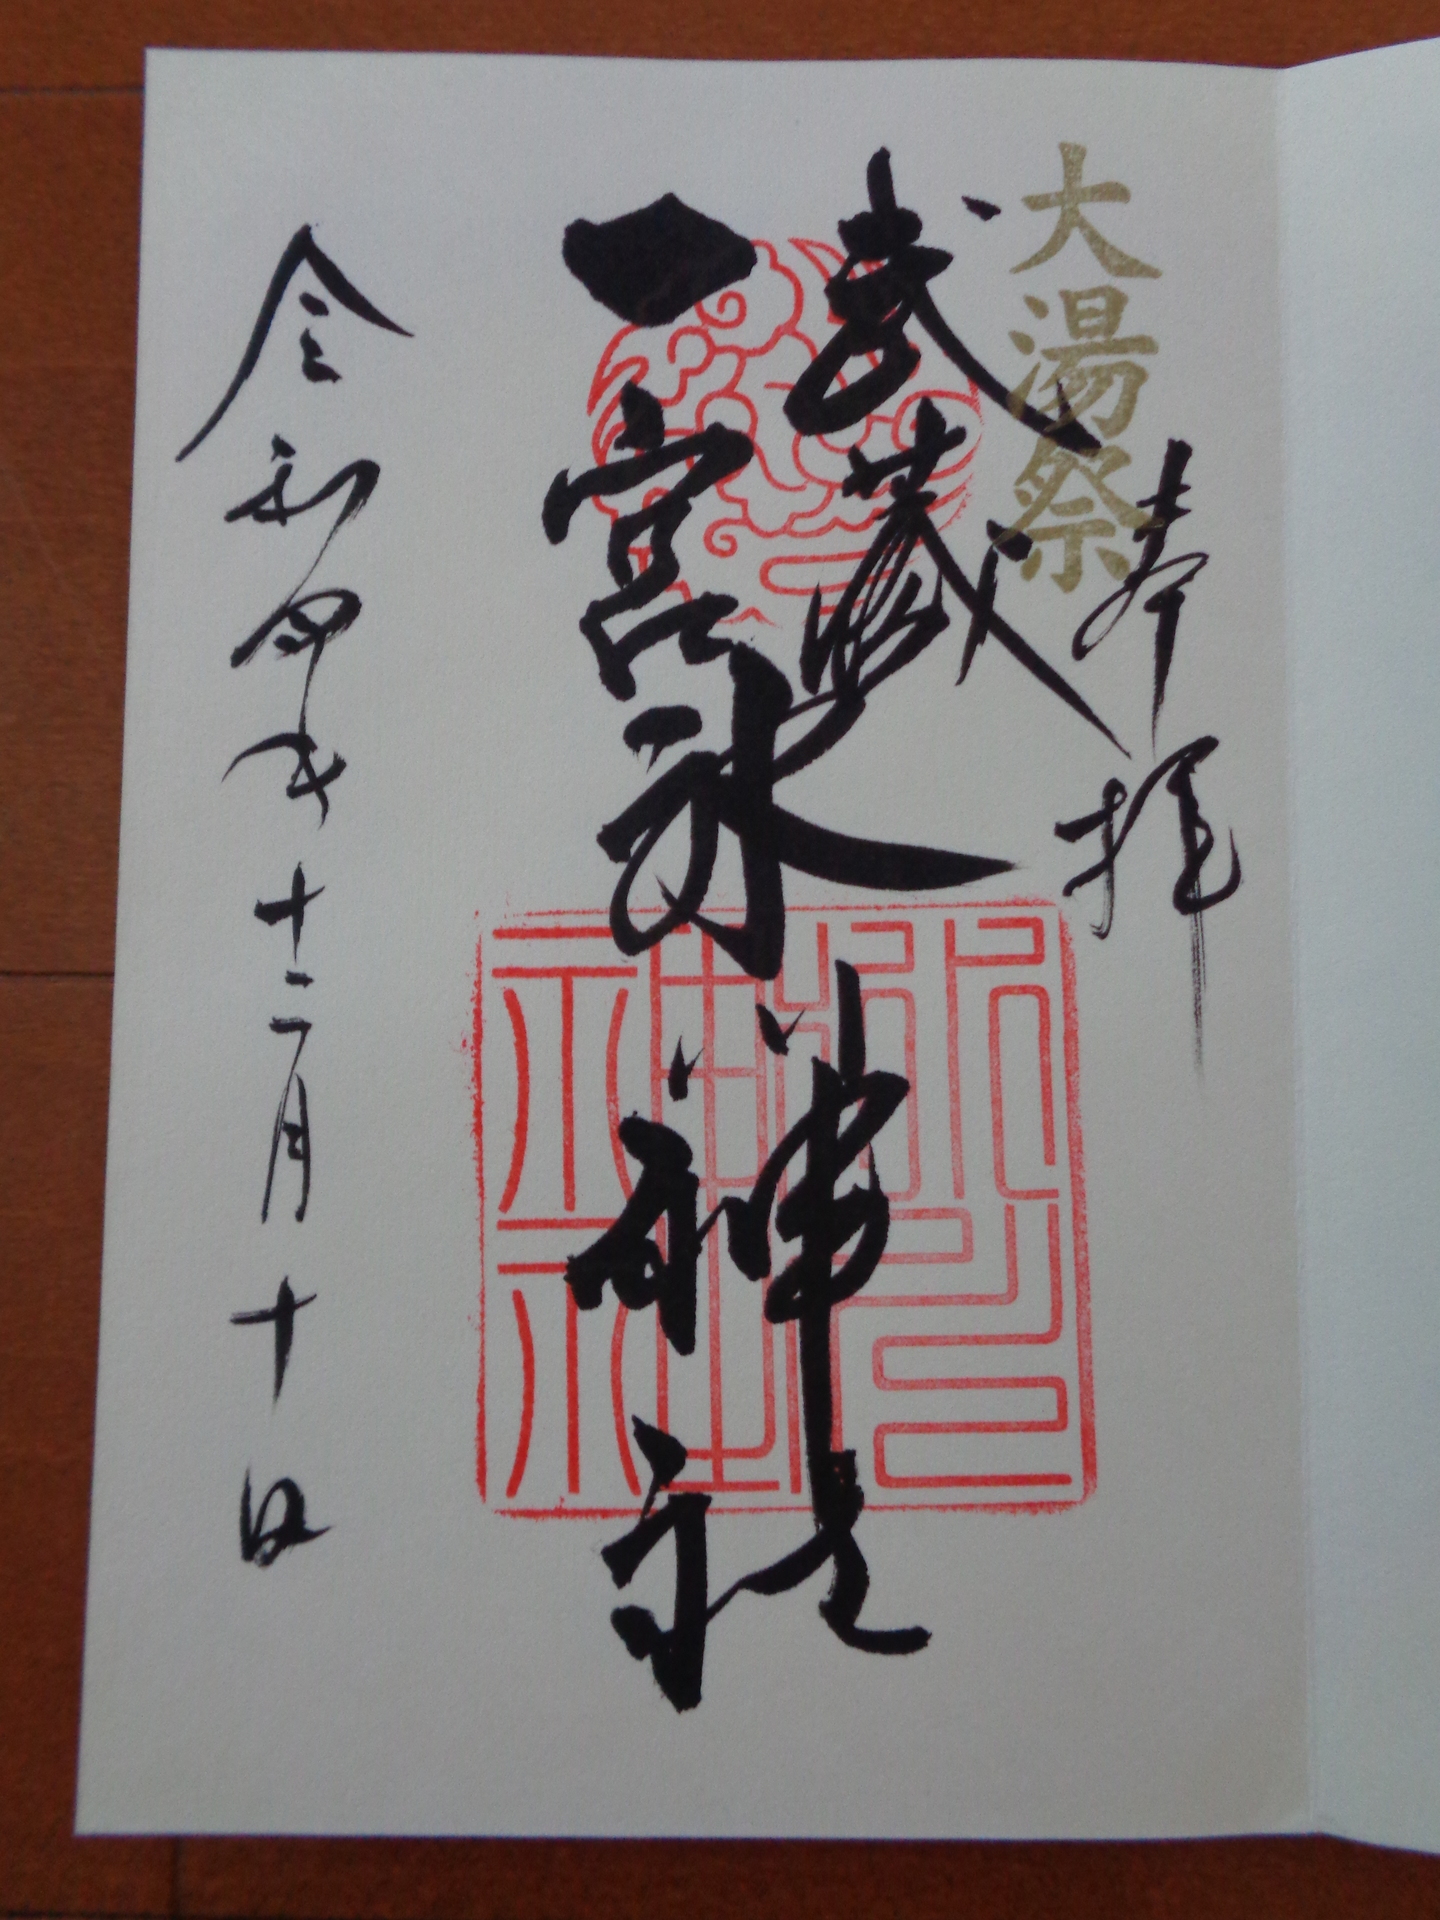 大湯祭
奉拝
武蔵
一宮氷川神社
令和四年十二月十日
氷川神社